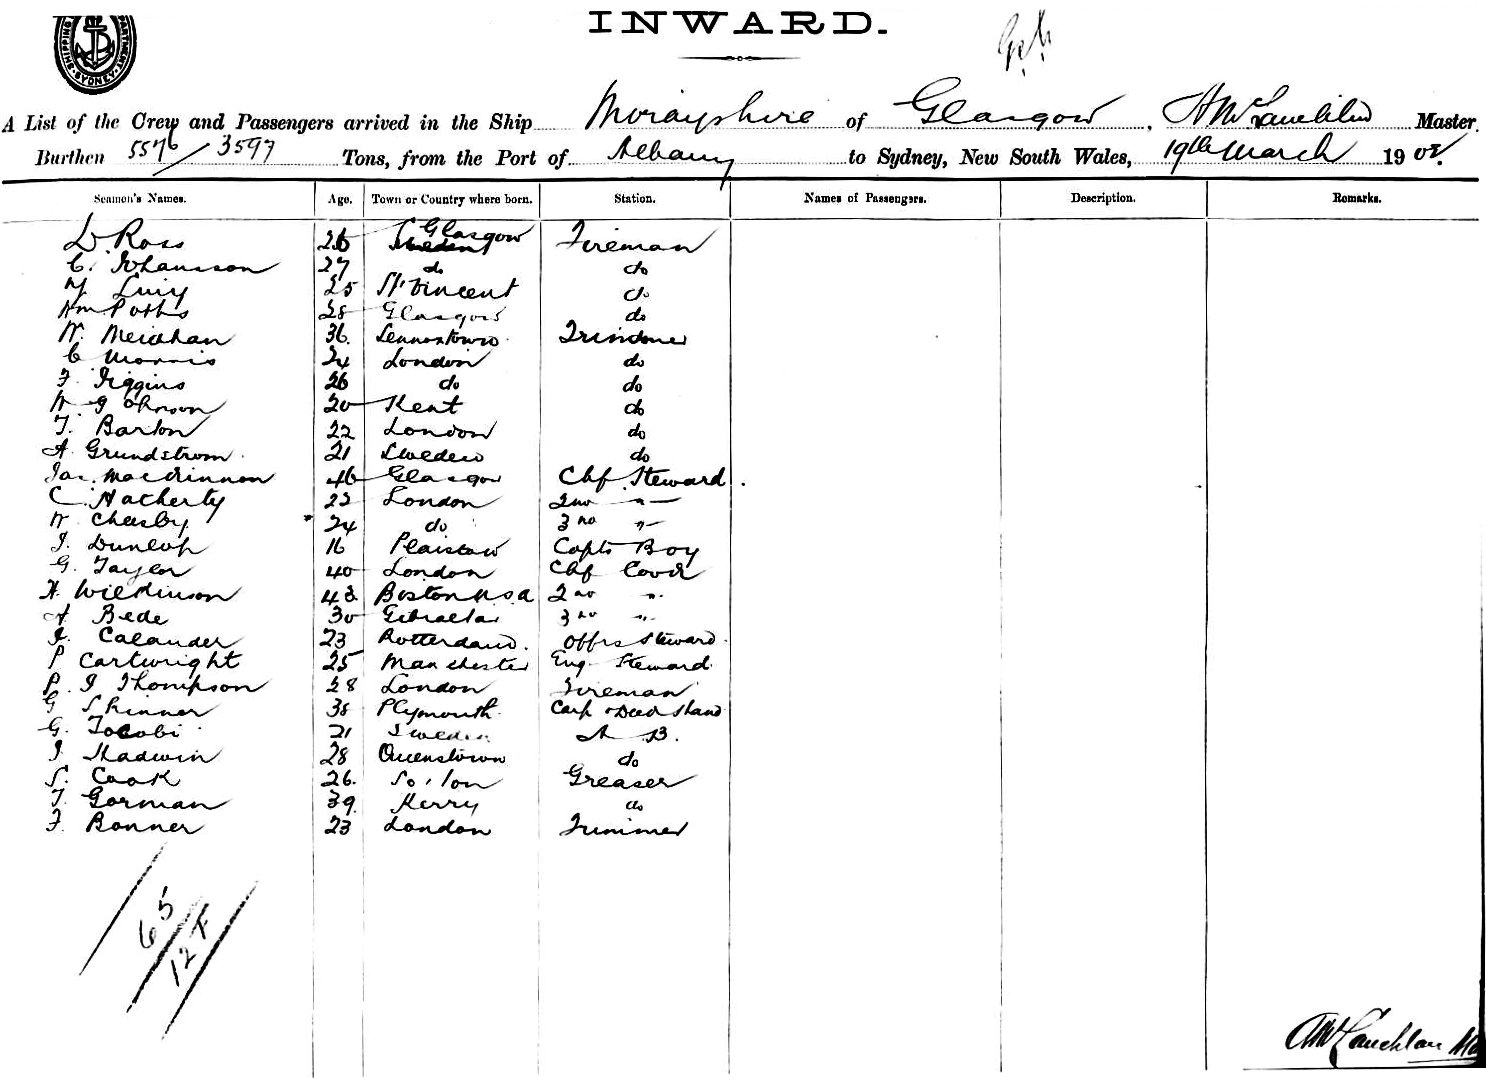 SHIPPING DEPARTMENT SYDNEY
INWARD.
A List of the Crew and Passengers arrived in the Ship Morayshire of Glasgow, A McLauchlan Master
Burthen 5576/3597 Tons, from the Port of Albany to Sydney, New South Wales, 19th March 1902
Seamen's Names. Age. Town or Country where born. Station. Names of Passengers. Description. Remarks.
D Ross 26 Glasgow Sweden Fireman
C. Johansson 27 do do
25 St Vincent do
Wm Potts 28 Glasgow do
W. Meighan 36. Lennoxtown Trimmer
C Morris 24 London do
F. Figgins 26 do do
W Johnson 20 Kent do
T. Barton 22 London do
A. Grundstrom 21 Sweden do
Jas. MacKinnon 46 Glasgow Chf Steward
C. Hatherty 22 London 2nd "
W Chesby 24 do 3rd "
J. Dunlop 16 Plaistow Capts Boy
G. Taylor 40 London Chf Cook
H. Wilkinson 43 Boston USA 2nd "
A Bede 30 Gibraltar 3rd "
J. Calander 23 Rotterdam. Offrs Steward
P Cartwright 25 Manchester Eng. Steward
P. J Thompson 28 London Fireman
G Skinner 38 Plymouth Carp & Deck Hand
G. Jacobi 21 Sweden A B.
J. Hadwin 28 Queenstown do
S. Cook 26. So'ton Greaser
T. Gorman 39. Kerry do
F. Bonner 23 London Trimmer
65
12 F
A McLauchlan